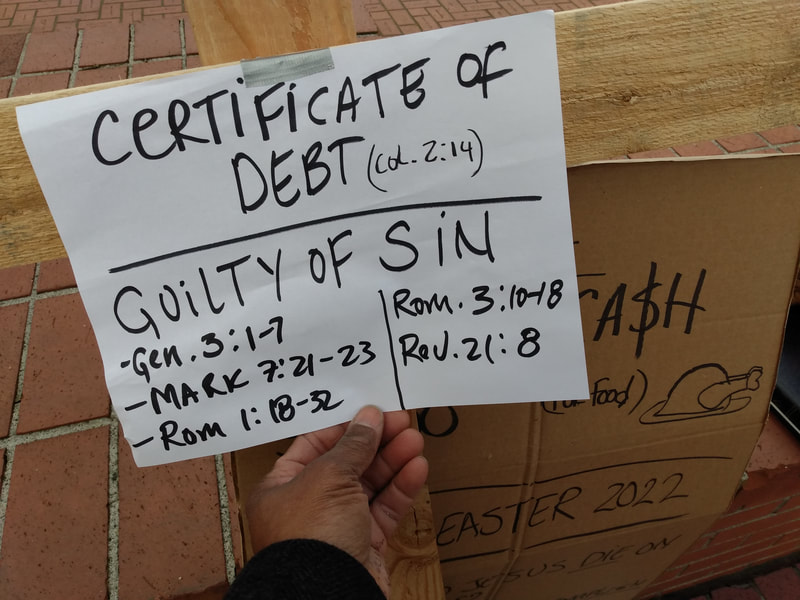 CERTiFiCATE OF
DEBT (Col. 2:14)
GUiLTY OF SiN
-Gen. 3:1-7
- MARK 7:21-23
- Rom 1:18-32
Rom. 3:10-18
Rev. 21:8
CA$H
Food)
EASTER 2022
JESUS DIE ON